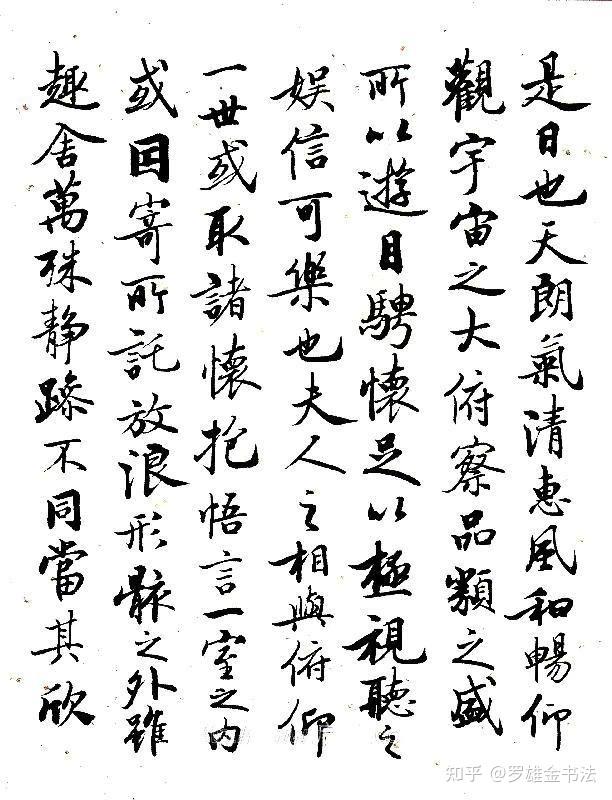 是日也天朗氣清惠風和暢仰
觀宇宙之大俯察品類之盛
所以遊目騁懷足以極視聽之
娛信可樂也夫人之相與俯仰
一世或取諸懷抱悟言一室之內
或因寄所託放浪形骸之外雖
趣舍萬殊靜躁不同當其欣
知乎 @罗雄金书法